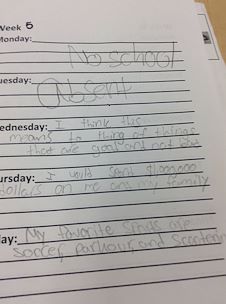 Week 5
Monday:
No school
uesday:
Absent
ednesday: I think this
means to thing of things
that are goal and not bad
ursday: I would spent $1,000,000
dollars on me and my family
ay: My favorite sports are
soccer, parkour, and scootering